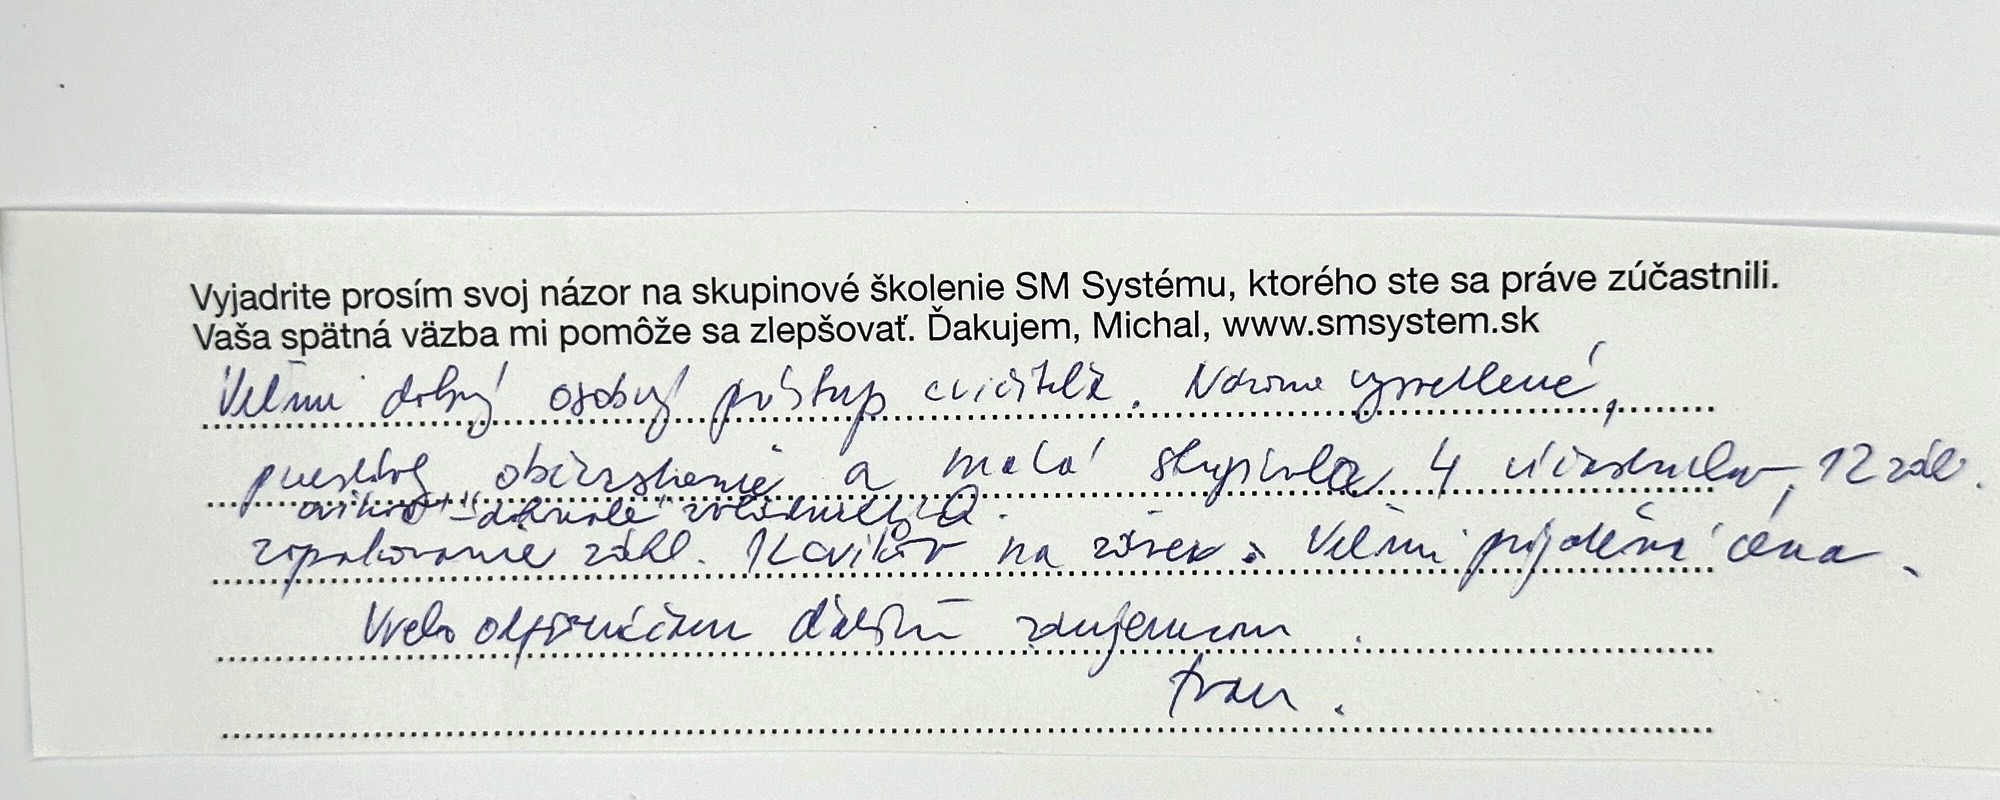 Vyjadrite prosím svoj názor na skupinové školenie SM Systému, ktorého ste sa práve zúčastnili.
Vaša spätná väzba mi pomôže sa zlepšovať. Ďakujem, Michal, www.smsystem.sk
Veľmi dobrý osobný prístup cvičiteľa. Názorne vysvetlené,
občerstvenie a malá skupinka 4 účastníkov, 12 zákl.
cvikov "dôkladne"
zopakovanie zákl. 12 cvikov na záver. Veľmi prijateľná cena.
Vrelo odporúčam ďalším záujemcom.